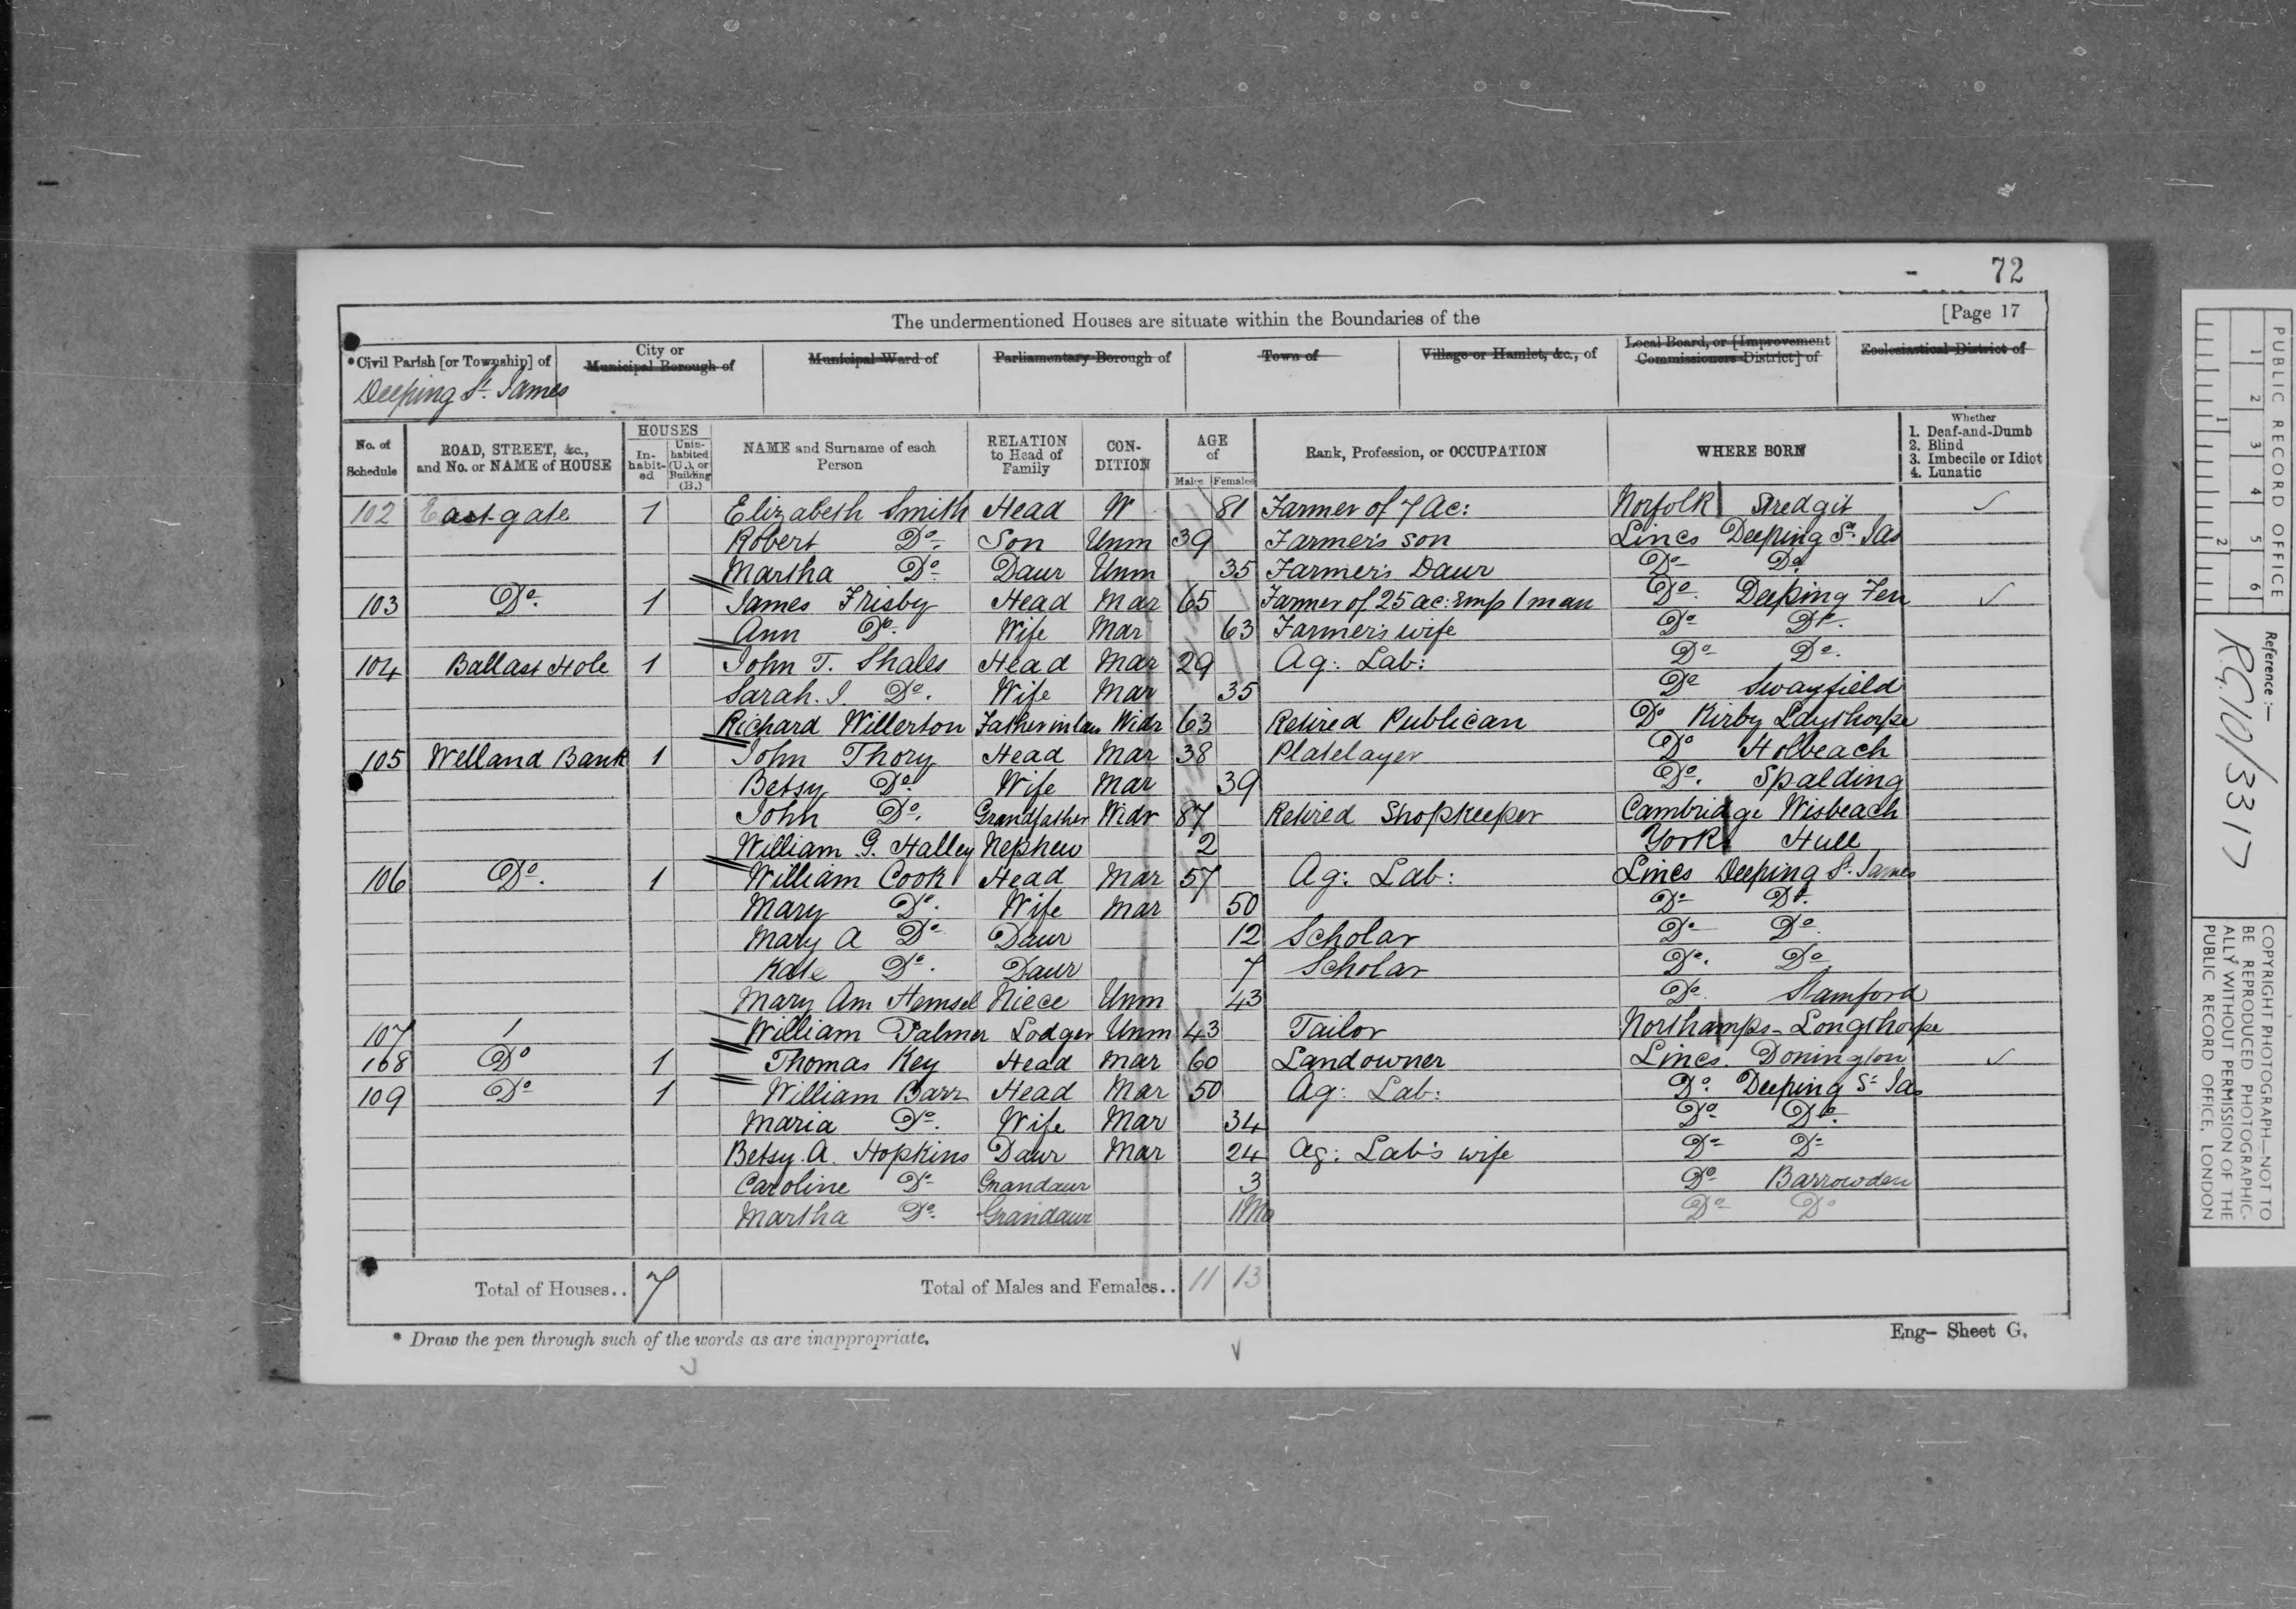 72
The undermentioned Houses are situate within the Boundaries of the [Page 17
*Civil Parish [or Township] of City or Municipal Borough of Municipal Ward of Parliamentary Borough of Town of Village or Hamlet, &c., of Local Board, or [Improvement Commissioners District] of Ecclesiastical District of
Deeping St. James
No. of Schedule ROAD, STREET, &c., and No. or NAME of HOUSE HOUSES Inhabited Uninhabited (U.), or Building (B.) NAME and Surname of each Person RELATION to Head of Family CONDITION AGE of Males Females Rank, Profession, or OCCUPATION WHERE BORN Whether 1. Deaf-and-Dumb 2. Blind 3. Imbecile or Idiot 4. Lunatic
102 Eastgate 1 Elizabeth Smith Head W 81 Farmer of 7 Ac: Norfolk ✓
Robert Do. Son Unm 39 Farmer's son Lincs Deeping St. Jas
Martha Do. Daur Unm 35 Farmer's Daur Do Do
103 Do. 1 James Frisby Head Mar 65 Farmer of 25 ac: emp 1 man Do. Deeping Fen ✓
Ann Do. Wife Mar 63 Farmer's wife Do Do.
104 Ballast Hole 1 John T. Shales Head Mar 29 Ag: Lab: Do Do.
Sarah. J. Do. Wife Mar 35 Do Swayfield
Richard Willerton Father in law Widr 63 Retired Publican Do Kirby Laythorpe
105 Welland Bank 1 John Thory Head Mar 38 Platelayer Do Holbeach
Betsy Do. Wife Mar 39 Do. Spalding
John Do. Grandfather Widr 87 Retired Shopkeeper Cambridge Wisbeach
William G. Halley Nephew 2 York Hull
106 Do. 1 William Cook Head Mar 57 Ag: Lab: Lincs Deeping St. James
Mary Do. Wife Mar 50 Do Do.
Mary A Do Daur 12 Scholar Do Do.
Kate Do. Daur 7 Scholar Do. Do
Mary Ann Hemsel Niece Unm 43 Do. Stamford
107 / William Palmer Lodger Unm 43 Tailor Northamps- Longthorpe
108 Do 1 Thomas Key Head Mar 60 Landowner Lincs. Donington ✓
109 Do 1 William Barr Head Mar 50 Ag: Lab: Do. Deeping St Jas
Maria Do. Wife Mar 34 Do Do.
Betsy. A. Hopkins Daur Mar 24 Ag: Lab's wife Do Do
Caroline Do Grandaur 3 Do Barrowden
Martha Do. Grandaur 1Mo Do Do
Total of Houses.. 7 Total of Males and Females.. 11 13
* Draw the pen through such of the words as are inappropriate.
Eng- Sheet G.
PUBLIC RECORD OFFICE
1 2 3 4 5 6
1 2
Reference:-
R.G. 10/3317
COPYRIGHT PHOTOGRAPH—NOT TO
BE REPRODUCED PHOTOGRAPHIC-
ALLY WITHOUT PERMISSION OF THE
PUBLIC RECORD OFFICE, LONDON